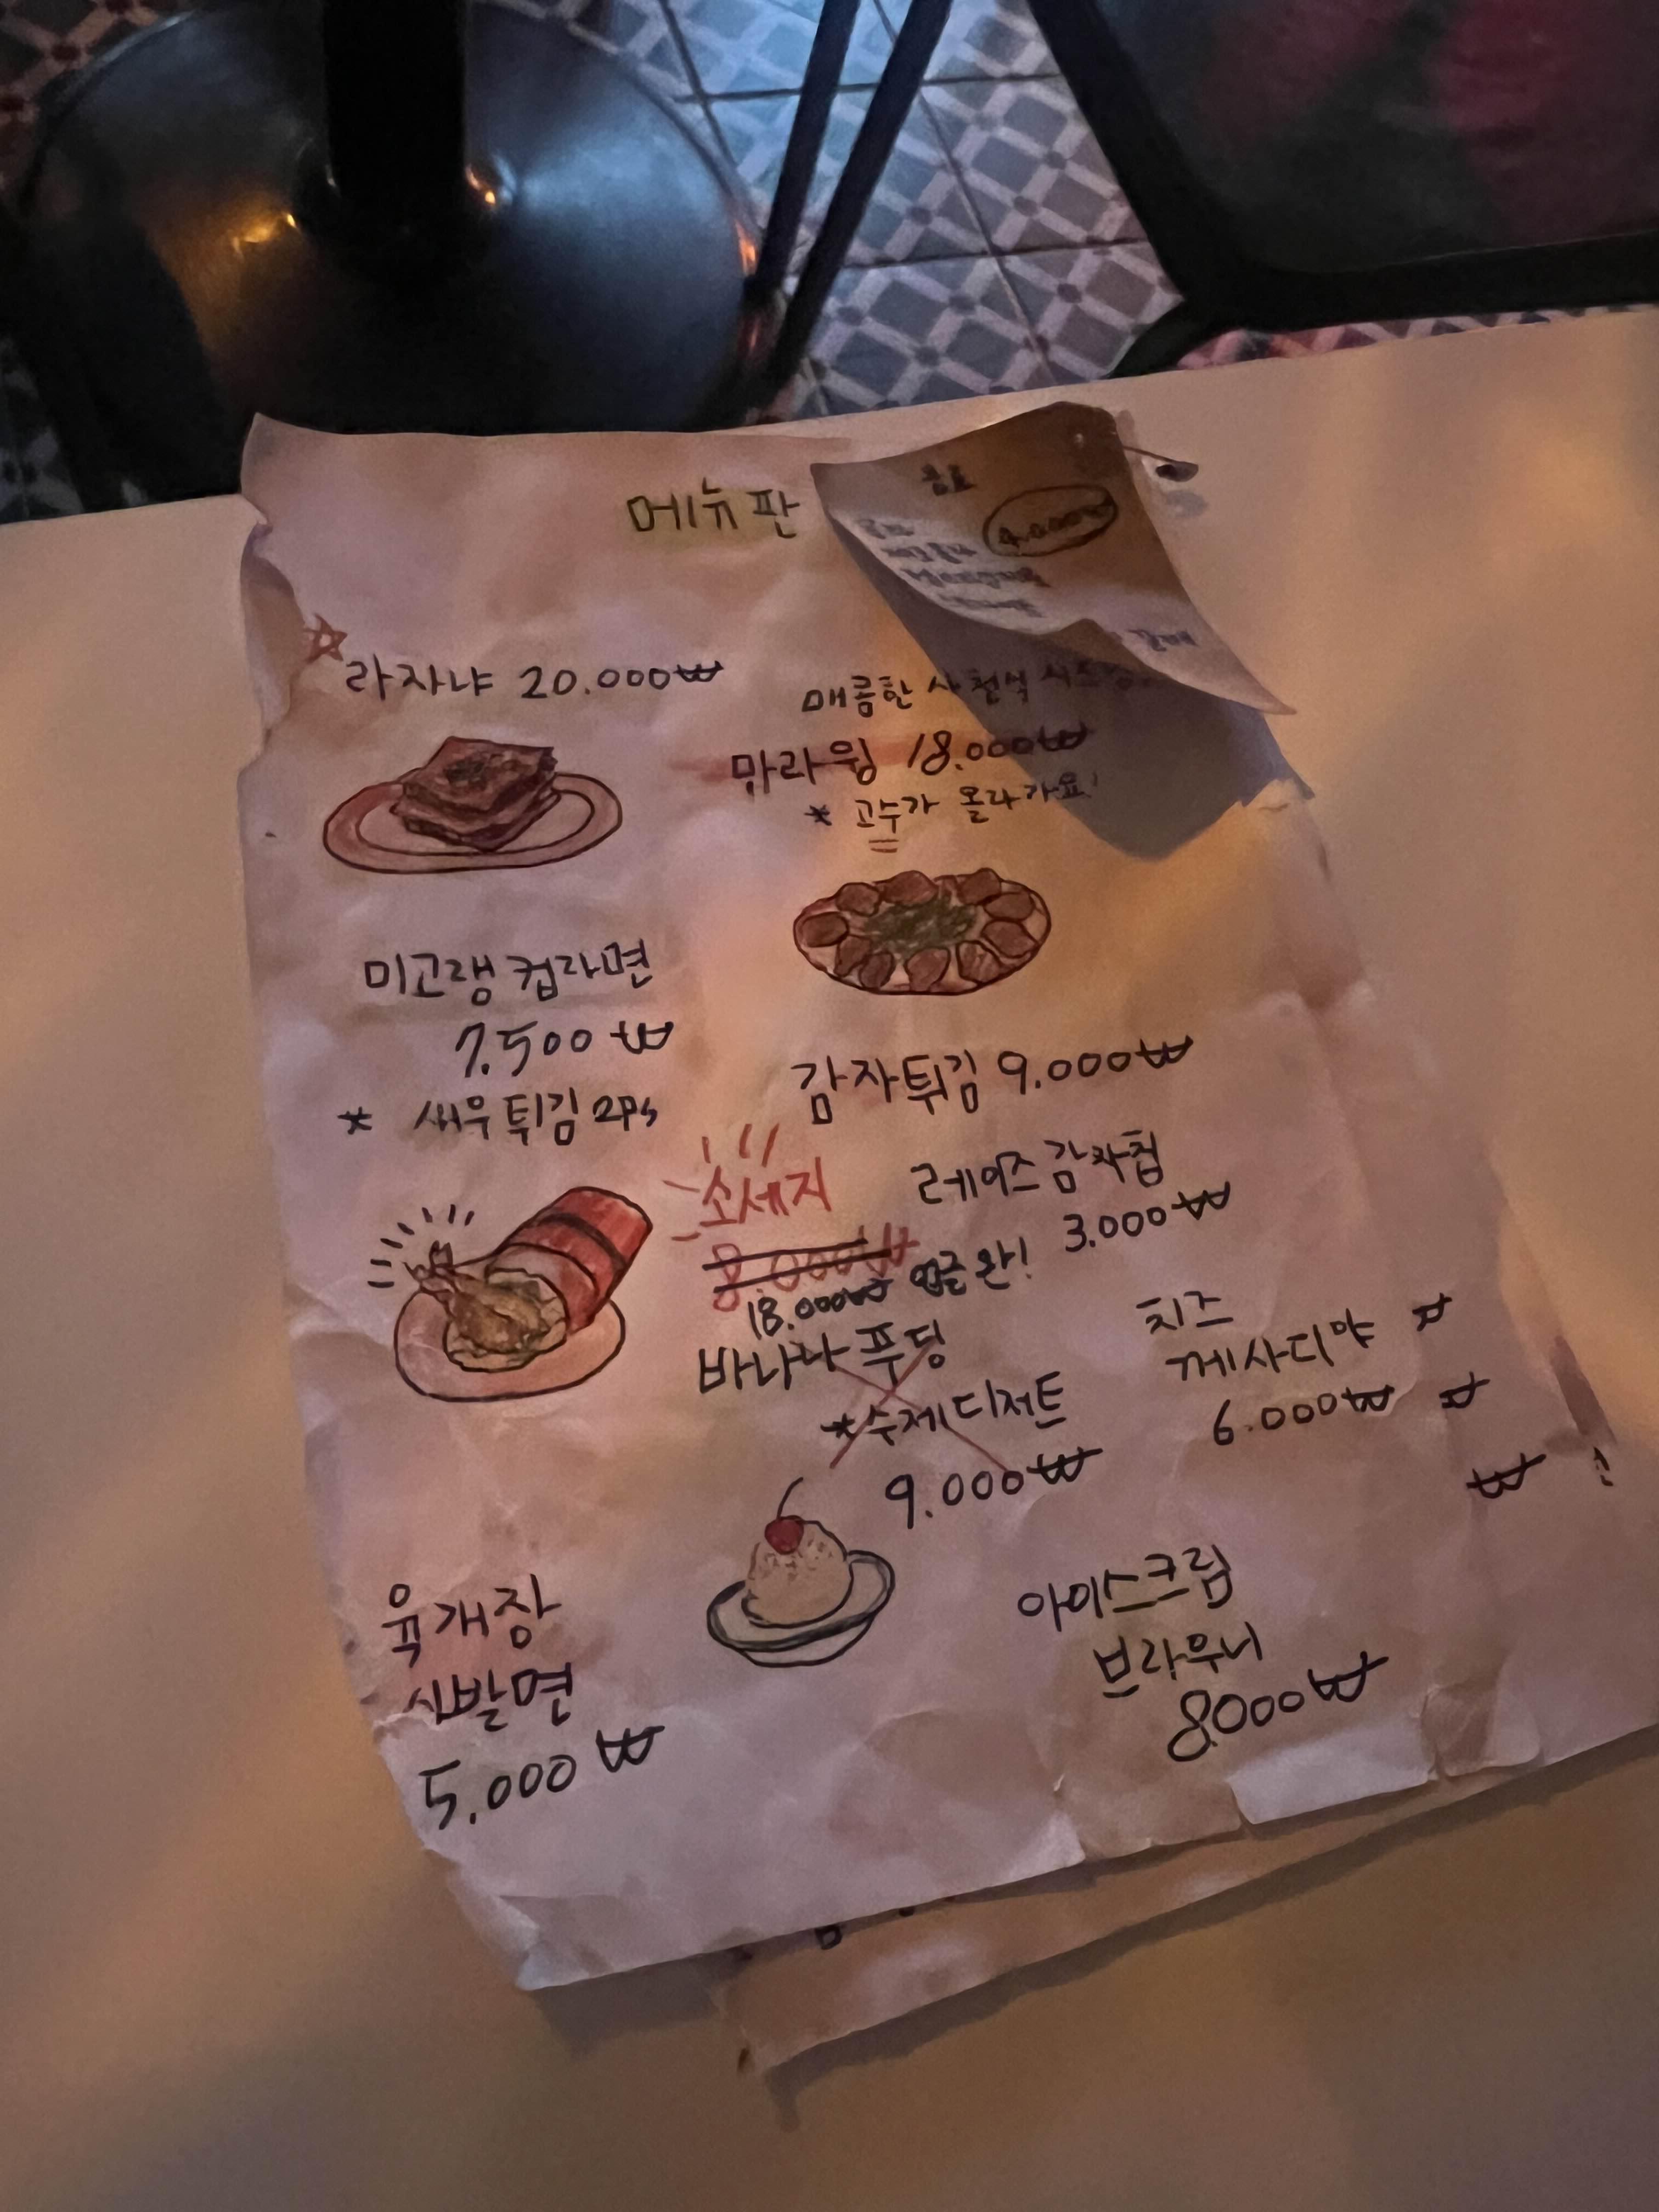 메뉴판
음료
4.000₩
라자냐 20.000₩
매콤한 사천식 시즈닝
마라윙 18.000₩
* 고수가 올라가요!
미고랭 컵라면
7.500₩
* 새우튀김 2ps
감자튀김 9.000₩
소세지
8.000₩
18.000₩ 업글완!
레이즈 감자칩
3.000₩
바나나 푸딩
*수제디저트
9.000₩
치즈
께사디야
6.000₩
₩
육개장
시발면
5.000₩
아이스크림
브라우니
8000₩